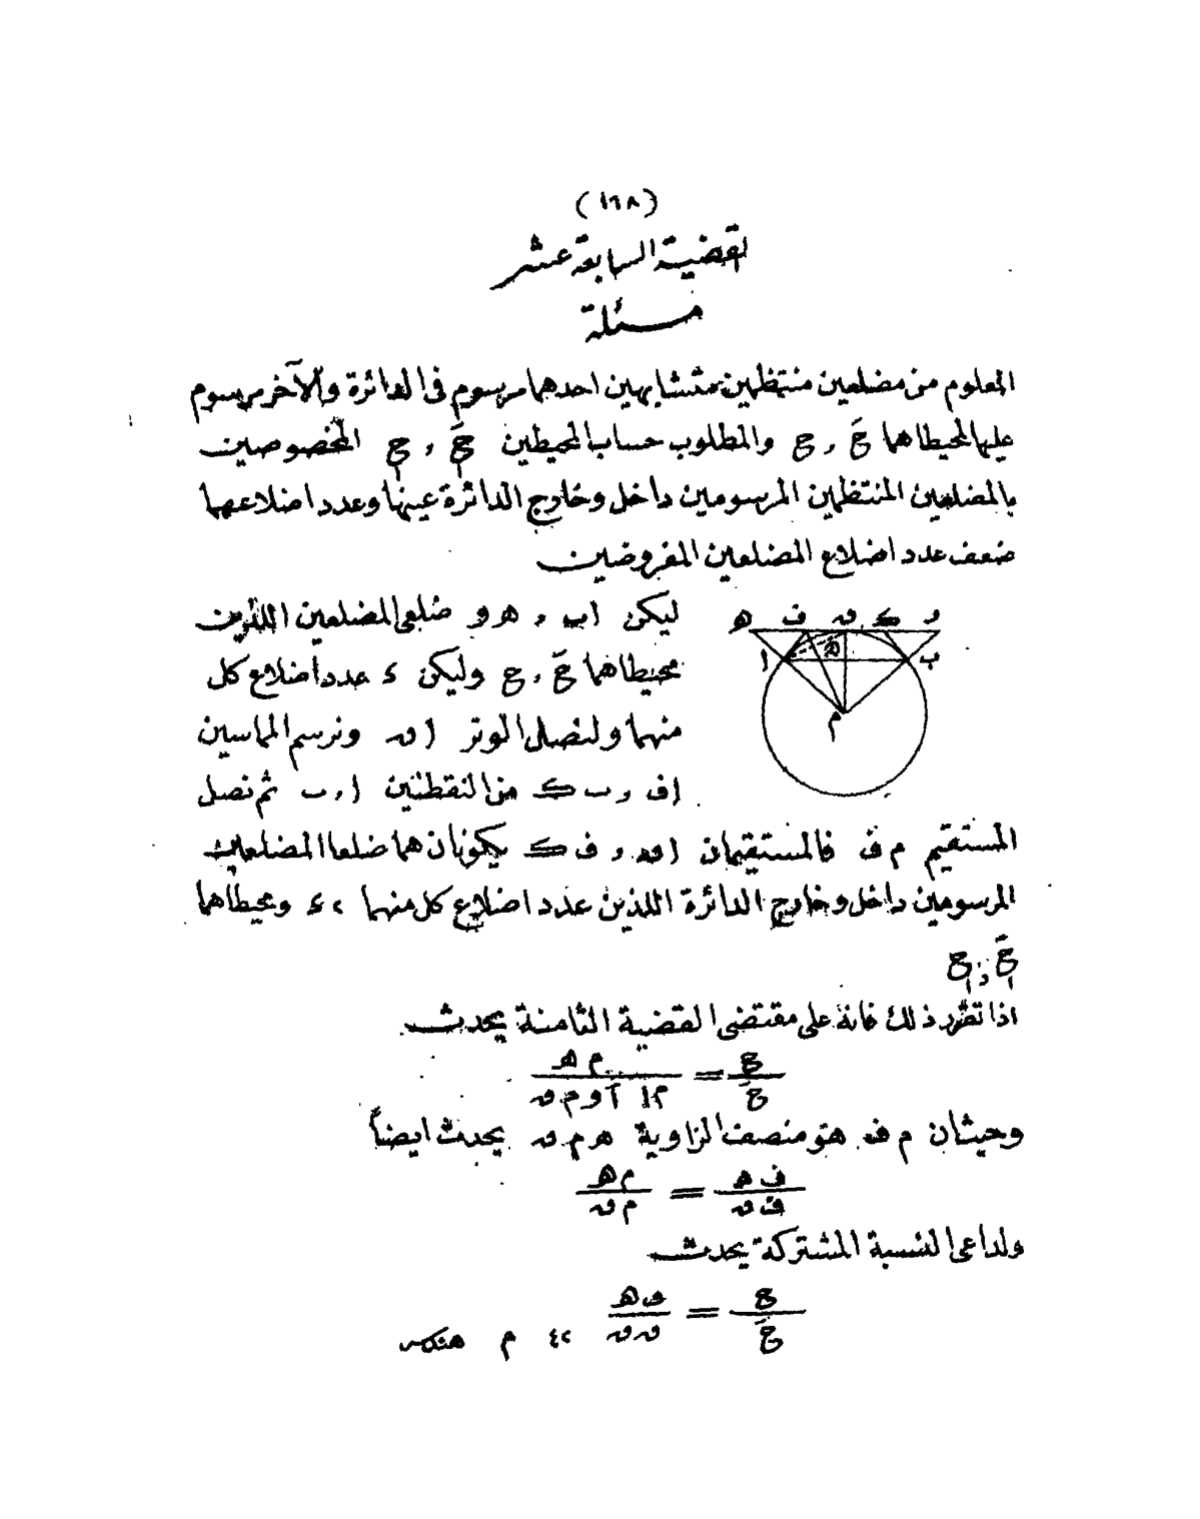 (١٦٨)
لقضية السابعة عشر
مسئلة
المعلوم من مضلعين منتظمين متشابهين احدهما مرسوم فى الدائرة والآخر مرسوم
عليها المحيطا هما حَ , ح والمطلوب حساب المحيطين حَ١ , ح١ المخصوصين
بالمضلعين المنتظمين المرسومين داخل وخارج الدائرة عينها وعدد اضلاعهما
ضعف عدد اضلاع المضلعين المفروضين
ليكن ا ب , ه و ضلعى المضلعين اللذين
محيطاهما حَ , ح وليكن ء عدد اضلاع كل
منهما ولنصل الوتر ا ق ونرسم المماسين
ا ف و ب ك من النقطتين ا , ب ثم نصل
ه ف ق ك و
ا ﻫ ب
م
المستقيم م ف فالمستقيمان ا ق , ف ك يكونان هما ضلعا المضلعين
المرسومين داخل وخارج الدائرة اللذين عدد اضلاع كل منهما ٢ء ومحيطاهما
حَ١ , ح١
اذا تقرر ذلك فانه على مقتضى القضية الثامنة يحدث
ح/حَ = م ه/م ا آو م ق
وحيث ان م ف هو منصف الزاوية ه م ق يحدث ايضاً
ف ه/ف ق = م ه/م ق
ولداعى النسبة المشتركة يحدث
ح/حَ = ف ه/ف ق
٢٤ م هندسه